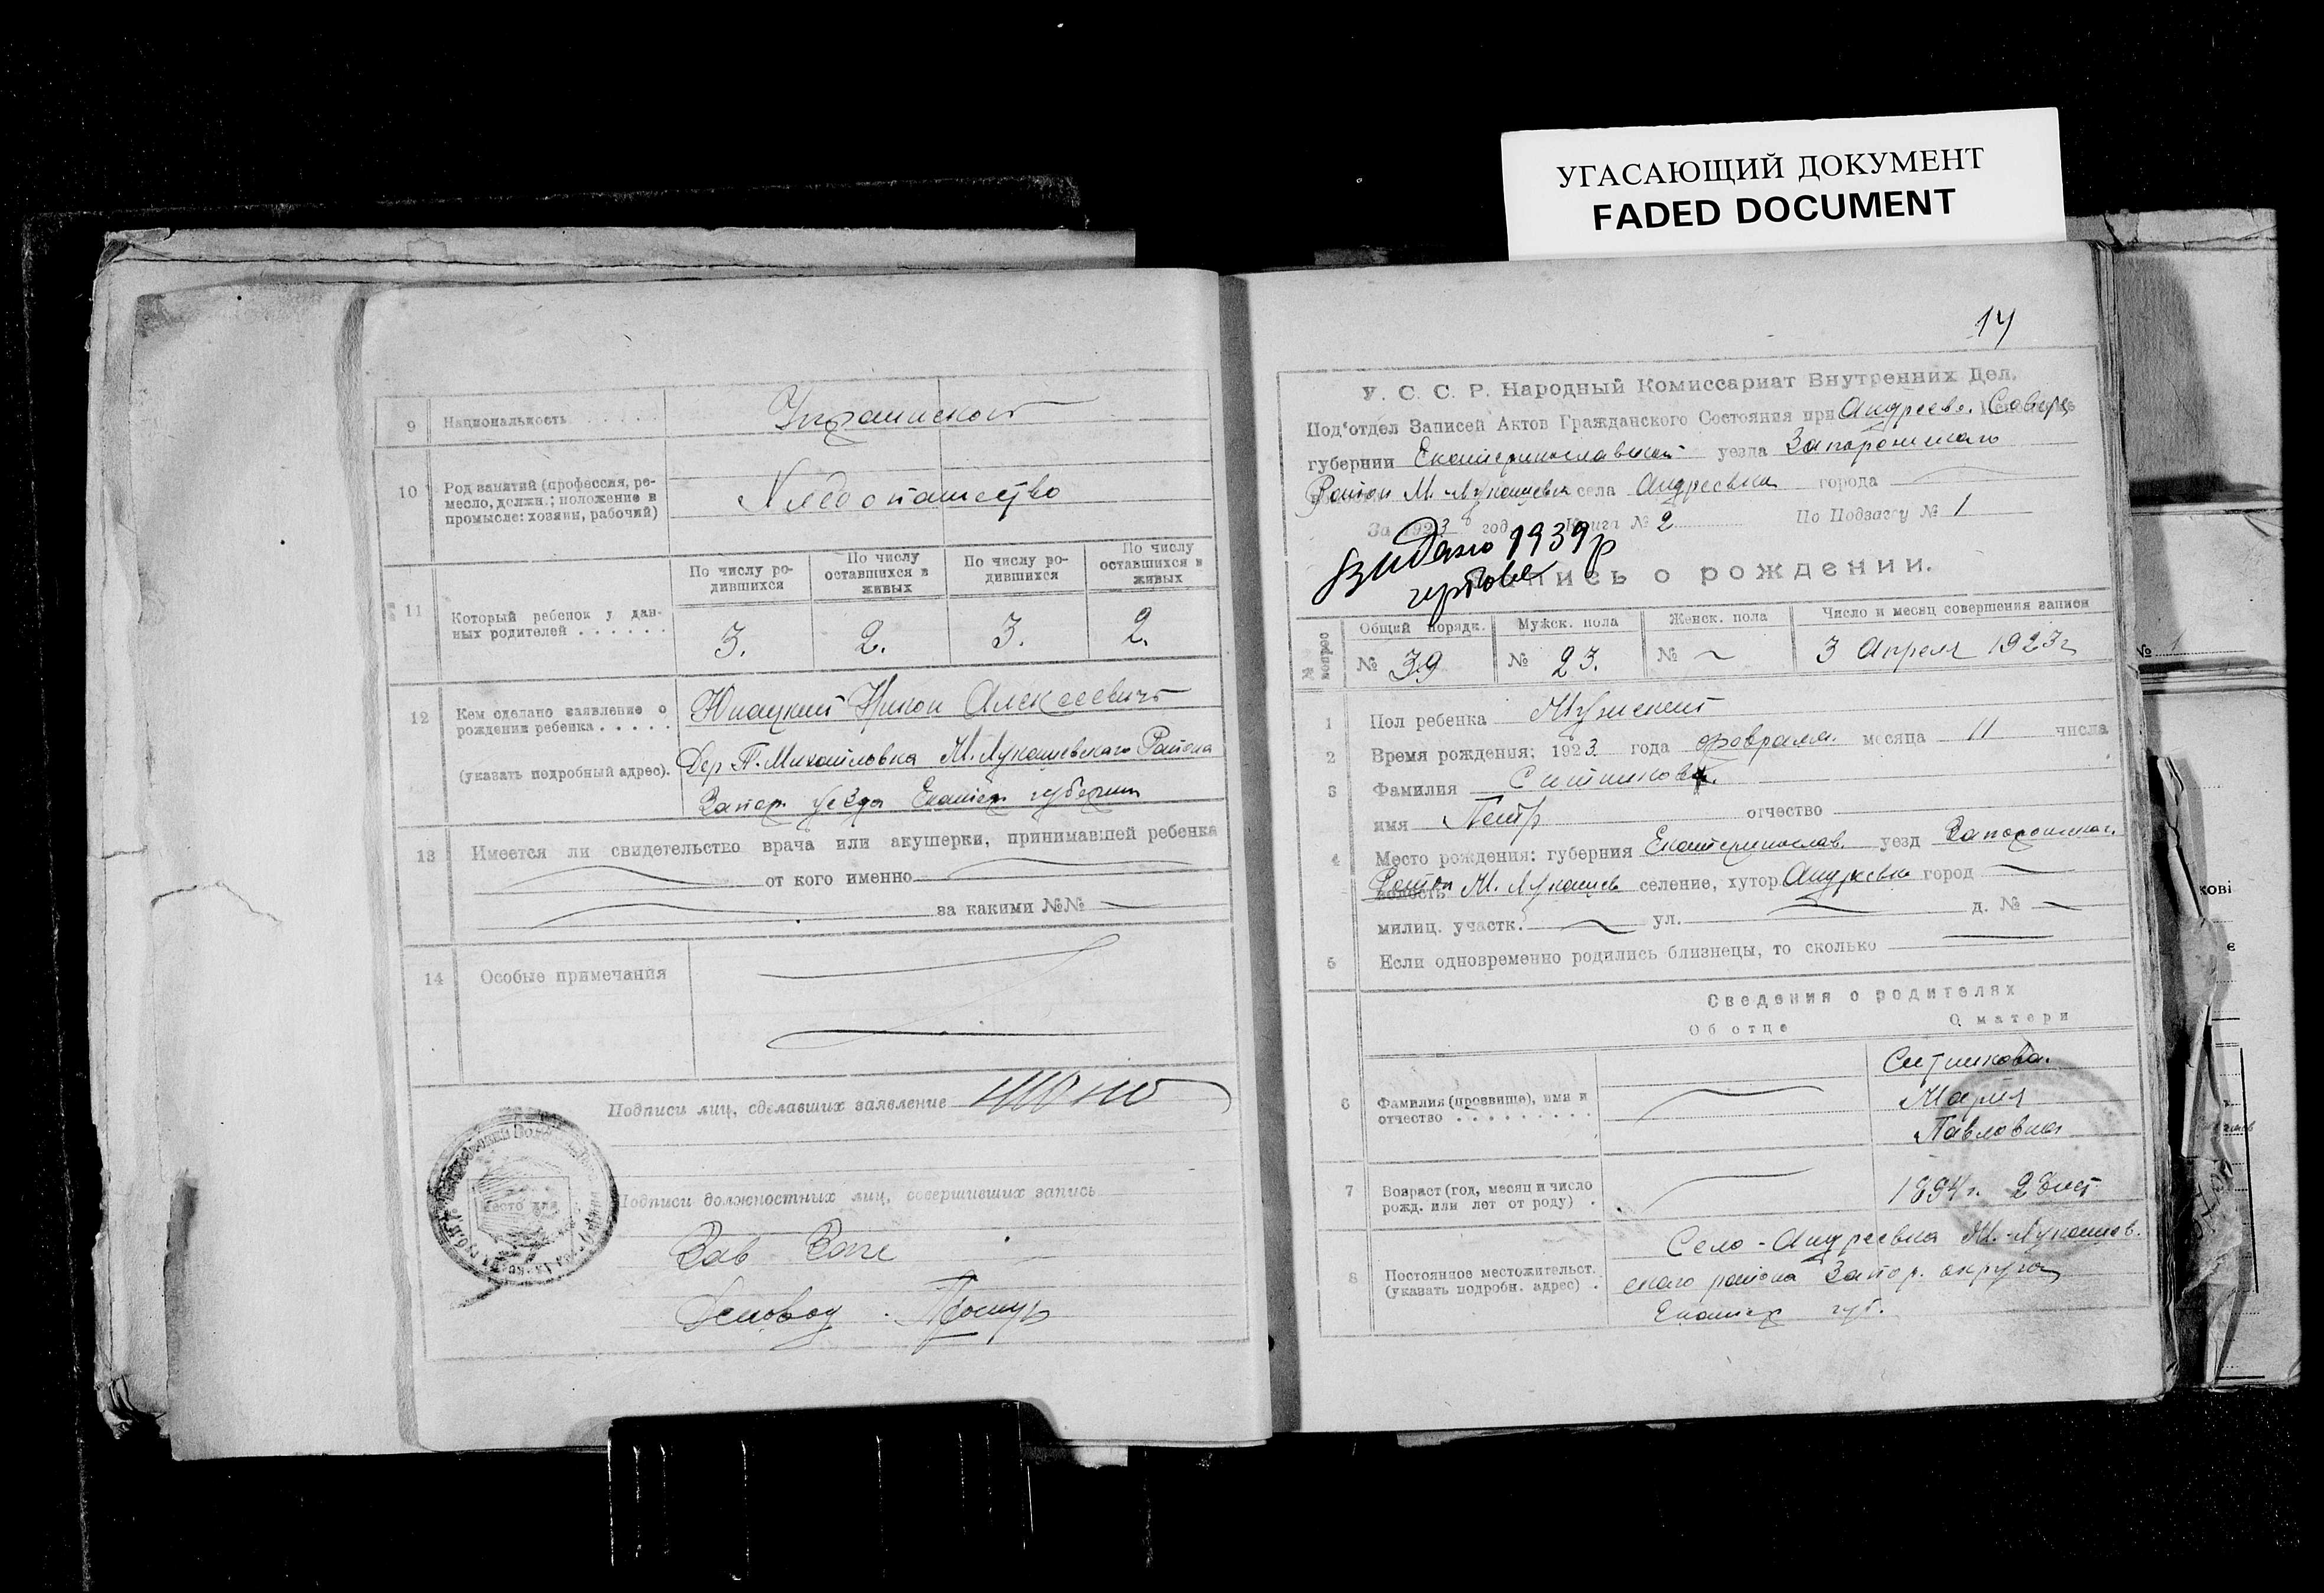 УГАСАЮЩИЙ ДОКУМЕНТ
FADED DOCUMENT
9 Национальность
10 Род занятий (профессия, ре-
месло, должн.; положение в
промысле: хозяин, рабочий)
Хлебопашество
11 Который ребенок у дан-
ных родителей
По числу ро-
дившихся
По числу
оставшихся в
живых
По числу ро-
дившихся
По числу
оставшихся в
живых
3. 2. 3. 2.
12 Кем сделано заявление о
рождении ребенка
(указать подробный адрес).
Никон Алексеевич
Дер. П. Михайловка М. Лукашевского Района
Запор. уезда Екатер. губернии
13 Имеется ли свидетельство врача или акушерки, принимавшей ребенка
от кого именно
за какими №№
14 Особые примечания
Подписи лиц, сделавших заявление
Подписи должностных лиц, совершивших запись
Зав Загс
Деловод
14
У. С. С. Р. Народный Комиссариат Внутренних Дел.
Под'отдел Записей Актов Гражданского Состояния при Андреевс.
губернии Екатеринославской уезда Запорожскаго
Район М. Лукашевка села Андреевка города
За 1923 год Книга № 2 По Подзагсу № 1
Видано 1939 р
Запись о рождении.
№ вопрос Общий порядк. Мужск. пола Женск. пола Число и месяц совершения записи
№ 39 № 23. № 3 Апреля 1923 г
1 Пол ребенка Мужской
2 Время рождения: 1923 года февраля месяца 11 числа
3 Фамилия Ситникова.
имя Петр отчество
4 Место рождения: губерния Екатеринослав. уезд Запорожскаг.
волость Район М. Лукашев селение, хутор Андреевка город
милиц. участк. ул. д. №
5 Если одновременно родились близнецы, то сколько
Сведения о родителях
Об отце О матери
6 Фамилия (прозвище), имя и
отчество
Ситникова.
Мария
Павловна
7 Возраст (год, месяц и число
рожд. или лет от роду)
1894 г. 28 лет
8 Постоянное местожительст.
(указать подробн. адрес)
Село-Андреевка М.-Лукашев.
скаго района Запор. округа
Екатер. губ.
№ 1